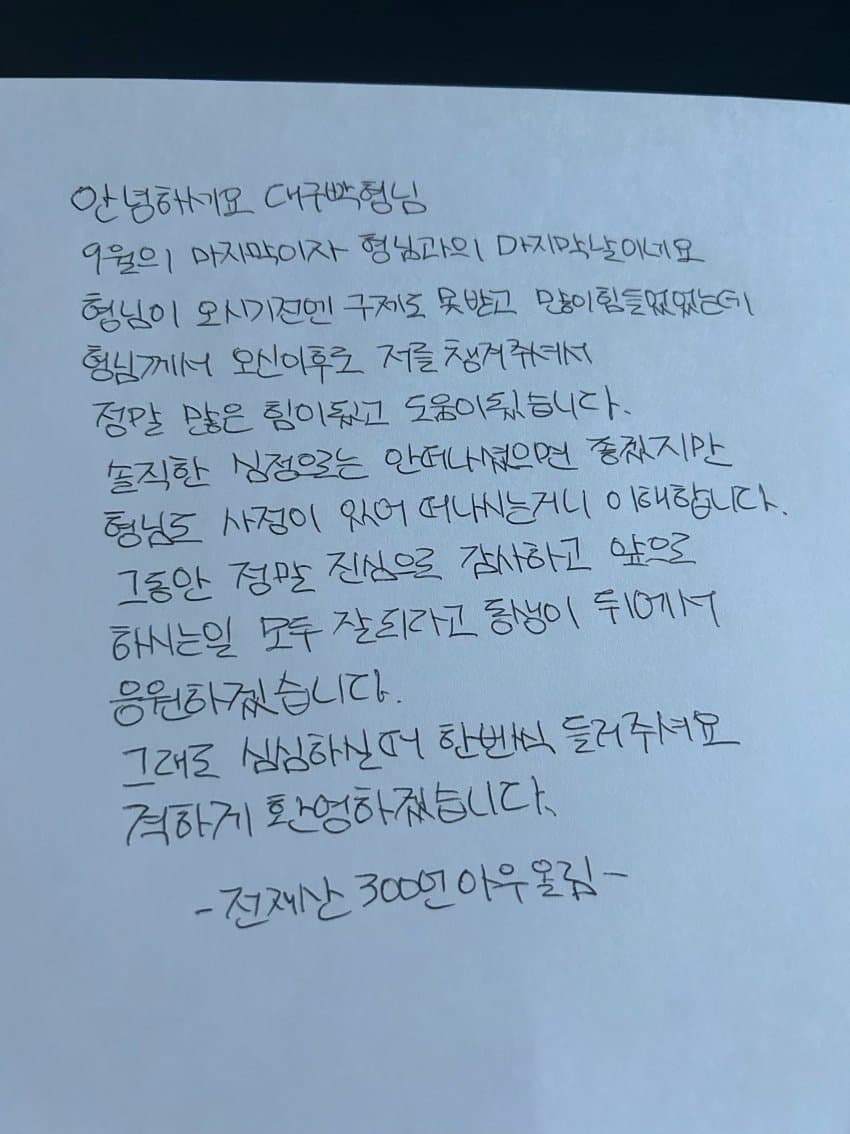 안녕하세요 대구박형님
9월의 마지막이자 형님과의 마지막날이네요
형님이 오시기전엔 구제도 못받고 많이힘들었었는데
형님께서 오신이후로 저를 챙겨주셔서
정말 많은 힘이됐고 도움이됐습니다.
솔직한 심정으로는 안떠나셨으면 좋겠지만
형님도 사정이 있어 떠나시는거니 이해합니다.
그동안 정말 진심으로 감사하고 앞으로
하시는일 모두 잘되라고 동생이 뒤에서
응원하겠습니다.
그래도 심심하실때 한번씩 들러주셔요
격하게 환영하겠습니다.
-전재산 300언 아우올림-